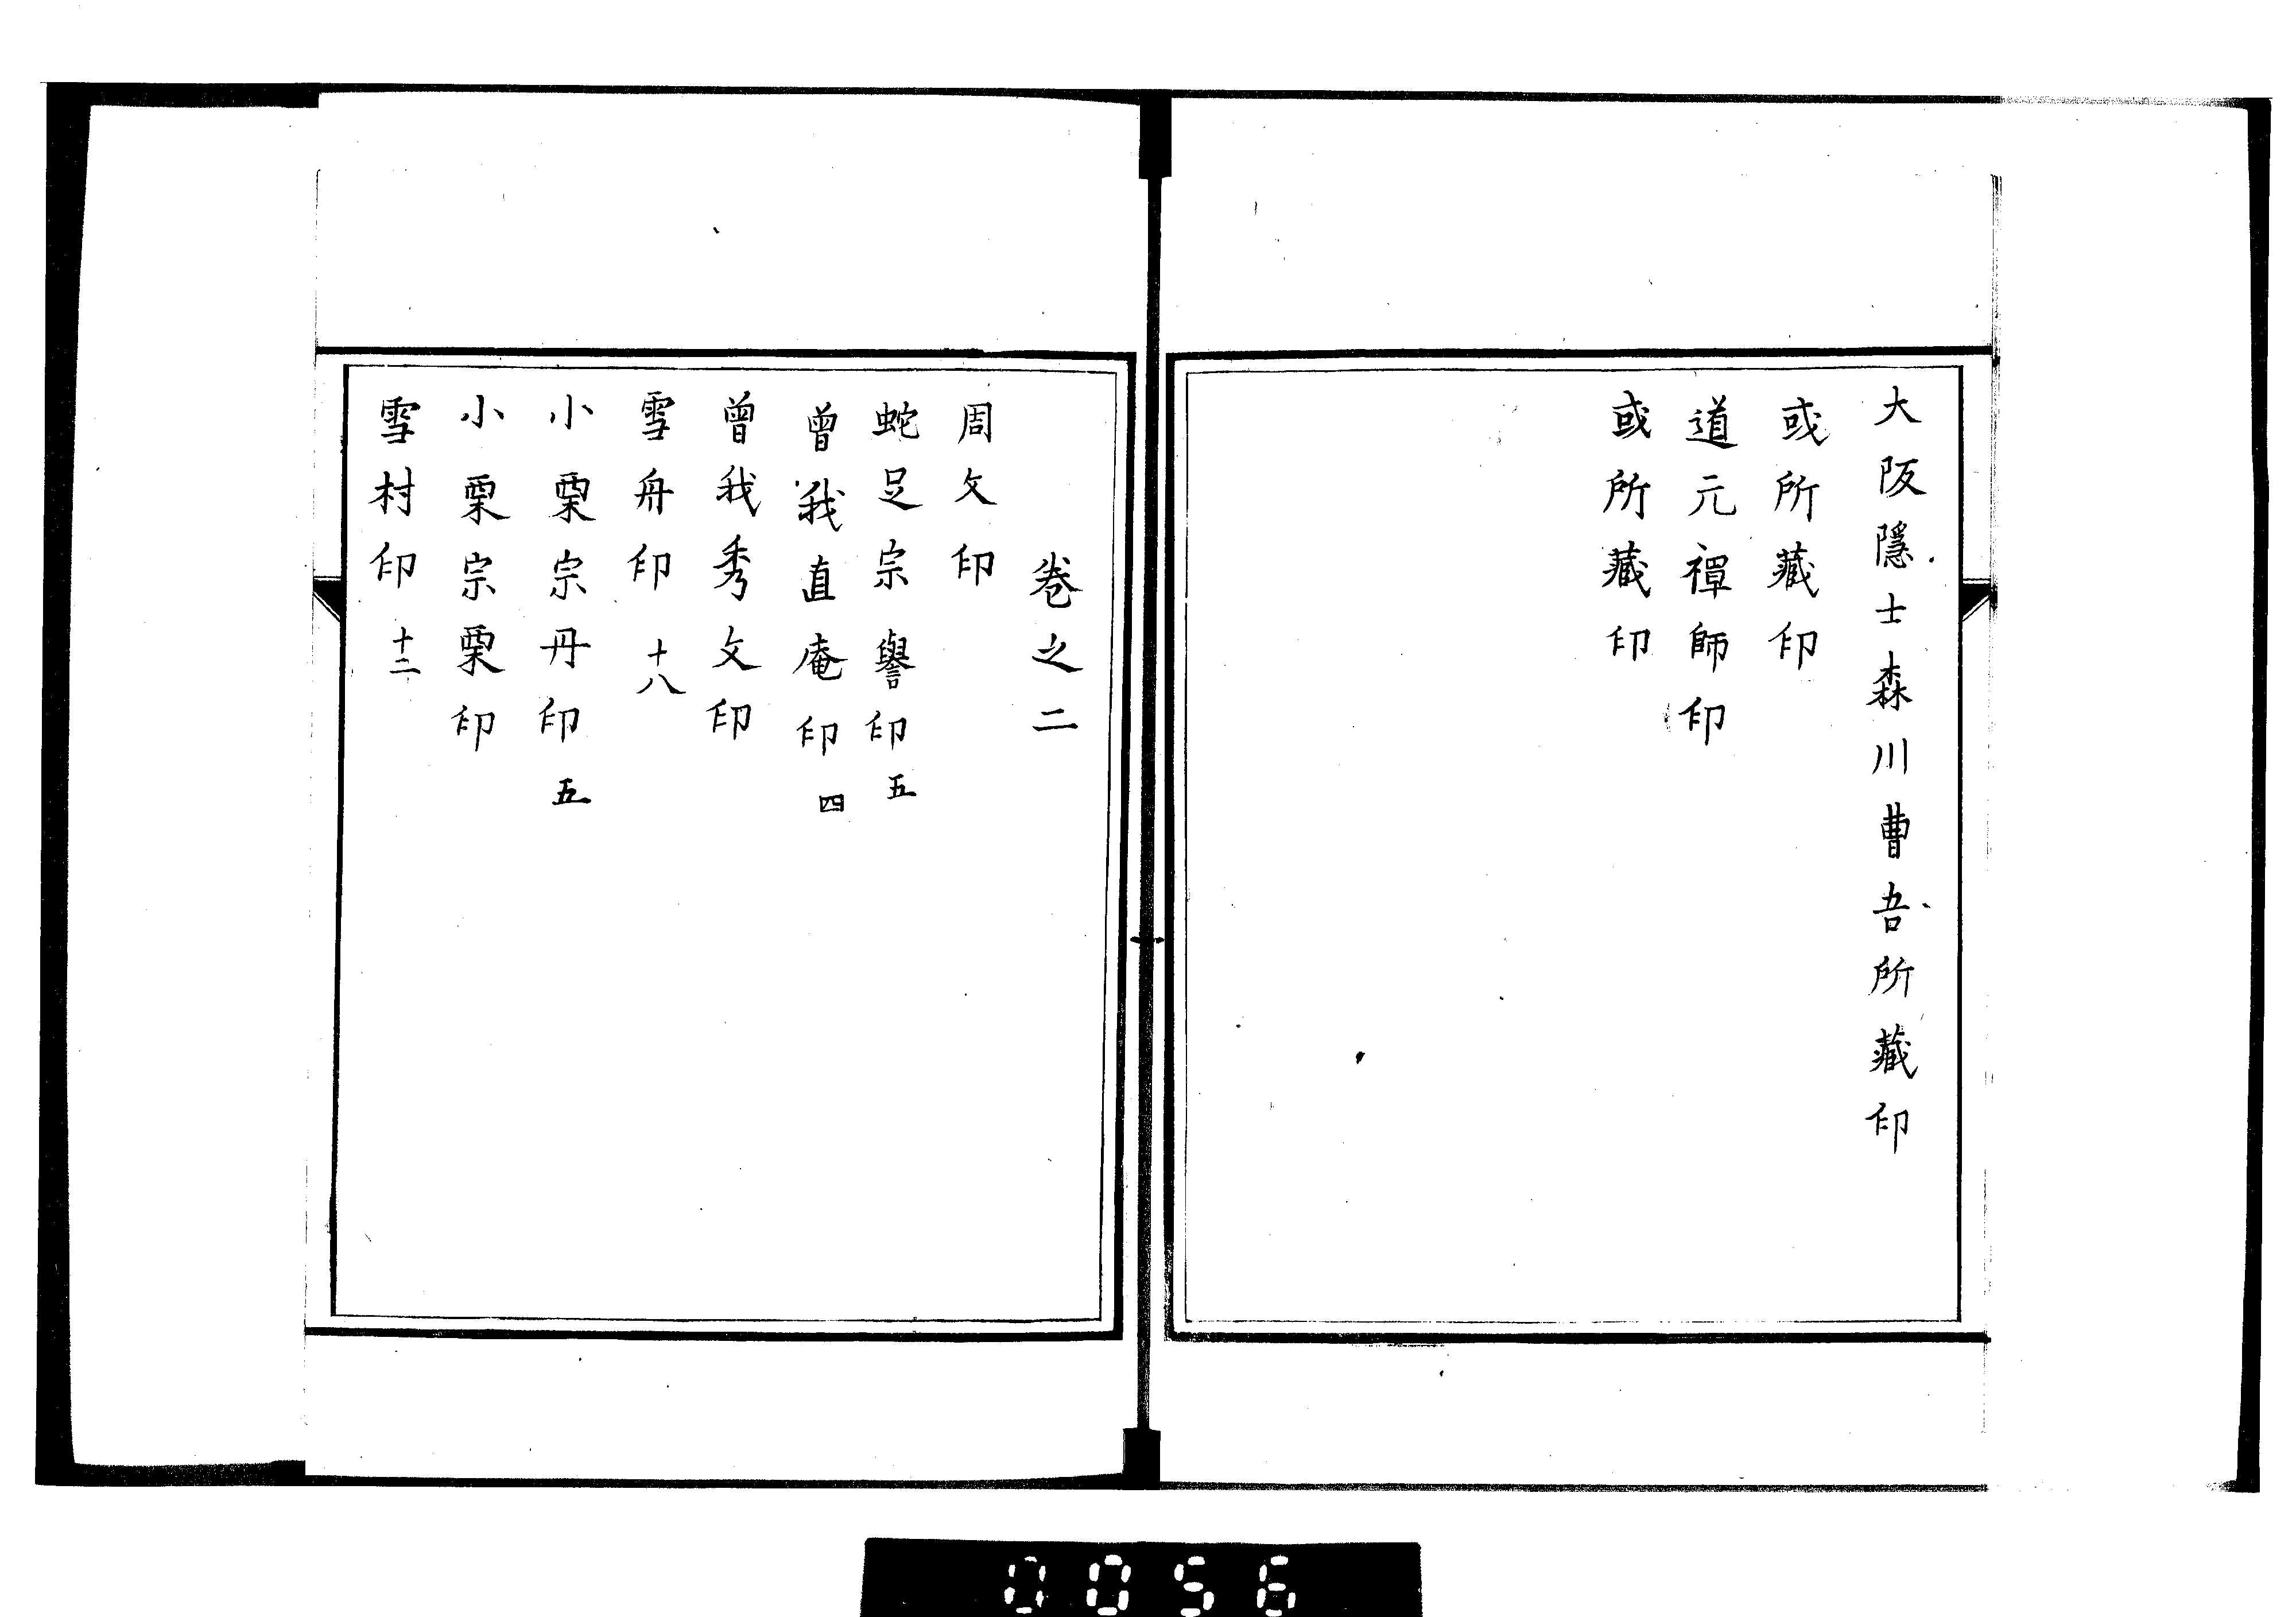 大阪隱士森川曹吾所藏印
或所藏印
道元禪師印
或所藏印
卷之二
周文印
蛇足宗譽印 五
曾我直庵印 四
曾我秀文印
雪舟印 十八
小栗宗丹印 五
小栗宗栗印
雪村印 十二
0056